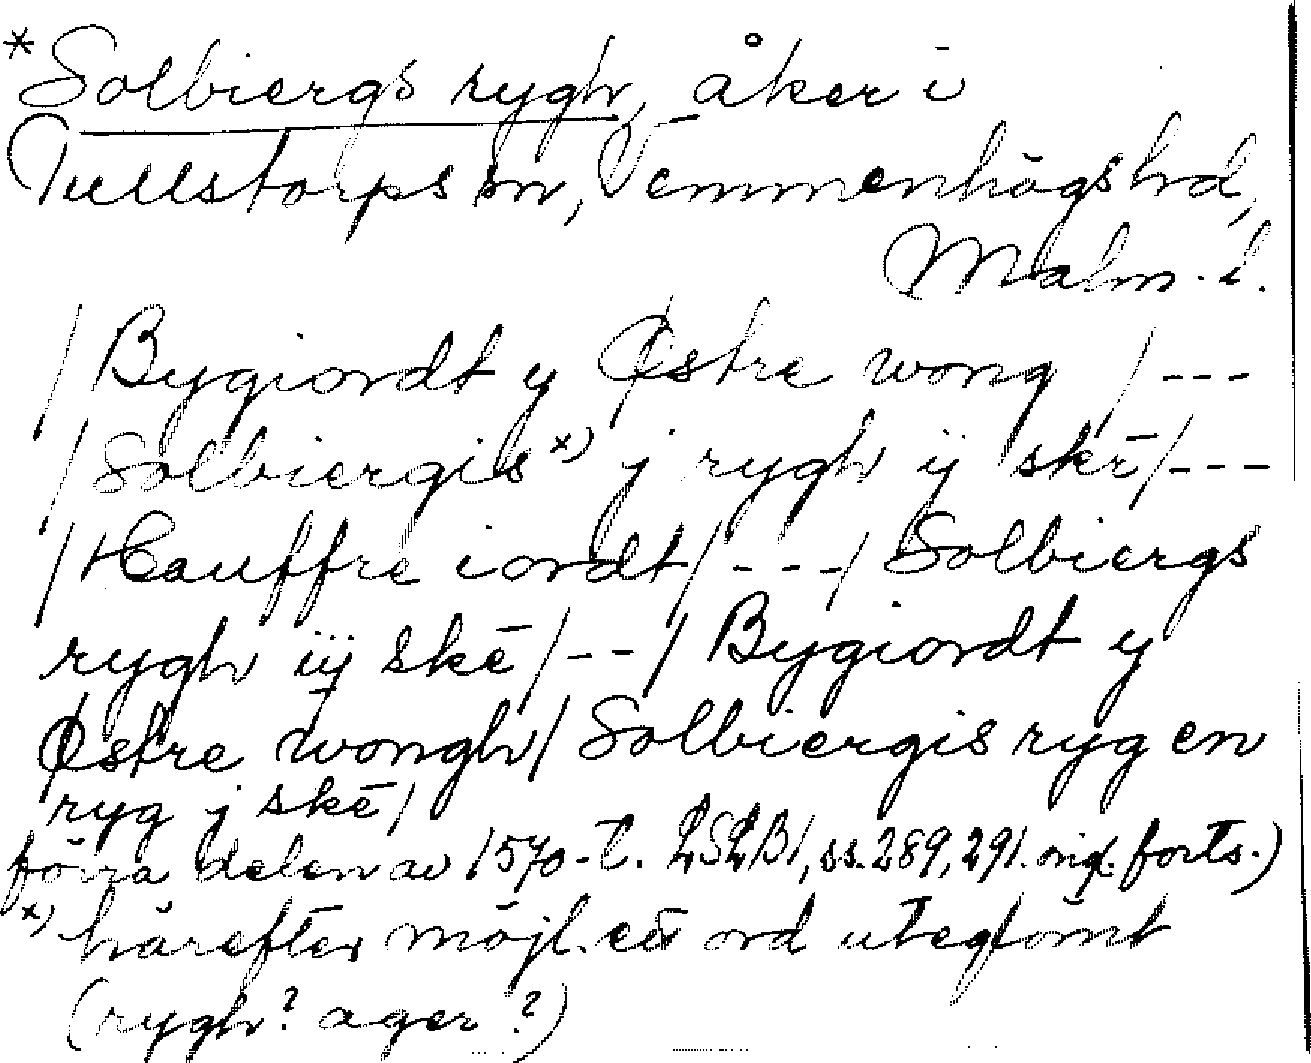 *Solbiergs rygh, åker i
Tullstorps sn, Vemmenhögs hd,
Malm. l.
/Bygiordt y Østre wong /---
/Solbiergis x) j rygh ij skē/---
/Hauffre iordt/---/Solbiergs
rygh iij skē/--/Bygiordt y
Østre wongh/Solbiergis ryg en
ryg j skē/
förra delen av 1570-t. LSLB1, ss. 289, 291. orig. forts.)
x) härefter möjl. ett ord uteglömt
(rygh? ager?)